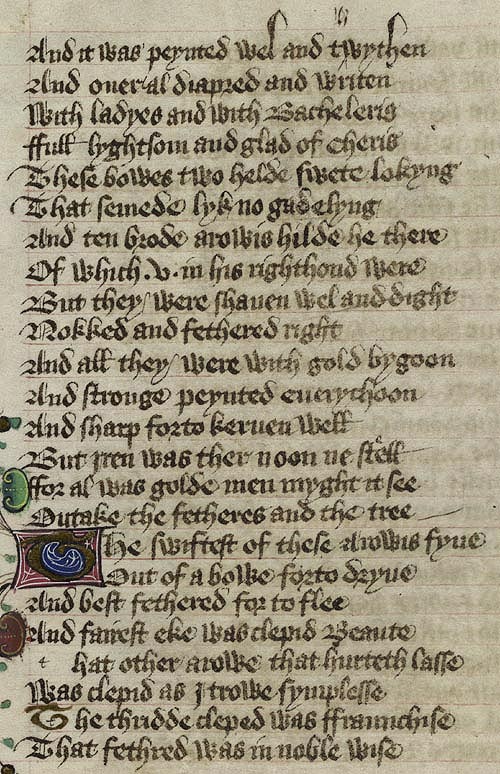 And it was peynted wel and twythen
And oueral diapred and writen
With ladyes and with Bacheleris
ffull lyghtsom and glad of cheris
These bowes two helde swete lokyng
That semede lyk no gadelyng
And ten brode arowis hilde he there
Of which .v. in his righthond were
But they were shauen wel and dight
Nokked and fethered right
And all they were with gold bygoon
And stronge peynted euerychoon
And sharp forto keruen well
But iren was ther noon ne stell
ffor al was golde men myght it see
Outake the fetheres and the tree
The swiftest of these arowis fyue
Out of a bowe forto dryue
And best fethered for to flee
And fairest eke was clepid Beaute
t hat other arowe that hurteth lasse
Was clepid as I trowe symplesse
The thridde cleped was ffraunchise
That fethred was in noble wise